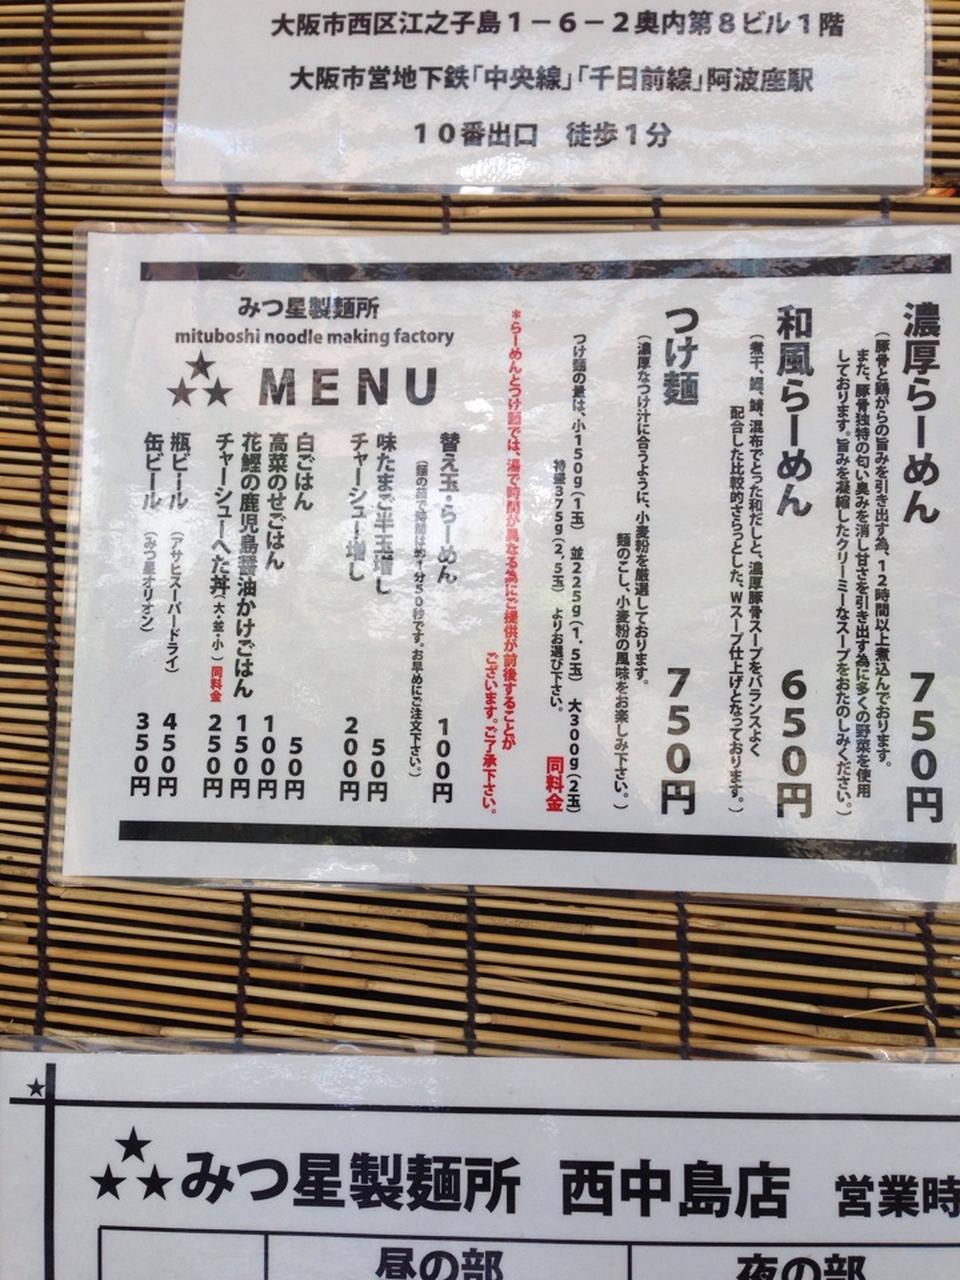 大阪市西区江之子島１－６－２奥内第８ビル１階
大阪市営地下鉄「中央線」「千日前線」阿波座駅
１０番出口　徒歩１分
みつ星製麺所
mituboshi noodle making factory
★★★ MENU
濃厚らーめん　７５０円
（豚骨と鶏がらの旨みを引き出す為、１２時間以上煮込んでおります。
また、豚骨独特の匂い臭みを消し甘さを引き出す為に多くの野菜を使用
しております。旨みを凝縮したクリーミーなスープをおたのしみください。）
和風らーめん　６５０円
（煮干、鰹、鯖、昆布でとった和だしと、濃厚豚骨スープをバランスよく
配合した比較的さらっとした、Wスープ仕上げとなっております。）
つけ麺　７５０円
（濃厚なつけ汁に合うように、小麦粉を厳選しております。
麺のこし、小麦粉の風味をお楽しみ下さい。）
つけ麺の量は、小１５０ｇ（１玉）　並２２５ｇ（１．５玉）　大３００ｇ（２玉）
特盛３７５ｇ（２．５玉）　よりお選び下さい。　同料金
＊らーめんとつけ麺では、湯で時間が異なる為にご提供が前後することが
ございます。ご了承下さい。
替え玉・らーめん　１００円
（麺の茹で時間は約１分５０秒です。お早めにご注文下さい。）
味たまご半玉増し　５０円
チャーシュー増し　２００円
白ごはん　５０円
高菜のせごはん　１００円
花鰹の鹿児島醤油かけごはん　１５０円
チャーシューへた丼（大・並・小）同料金　２５０円
瓶ビール　（アサヒスーパードライ）　４５０円
缶ビール　（みつ星オリオン）　３５０円
★★★みつ星製麺所　西中島店　営業時
昼の部　夜の部